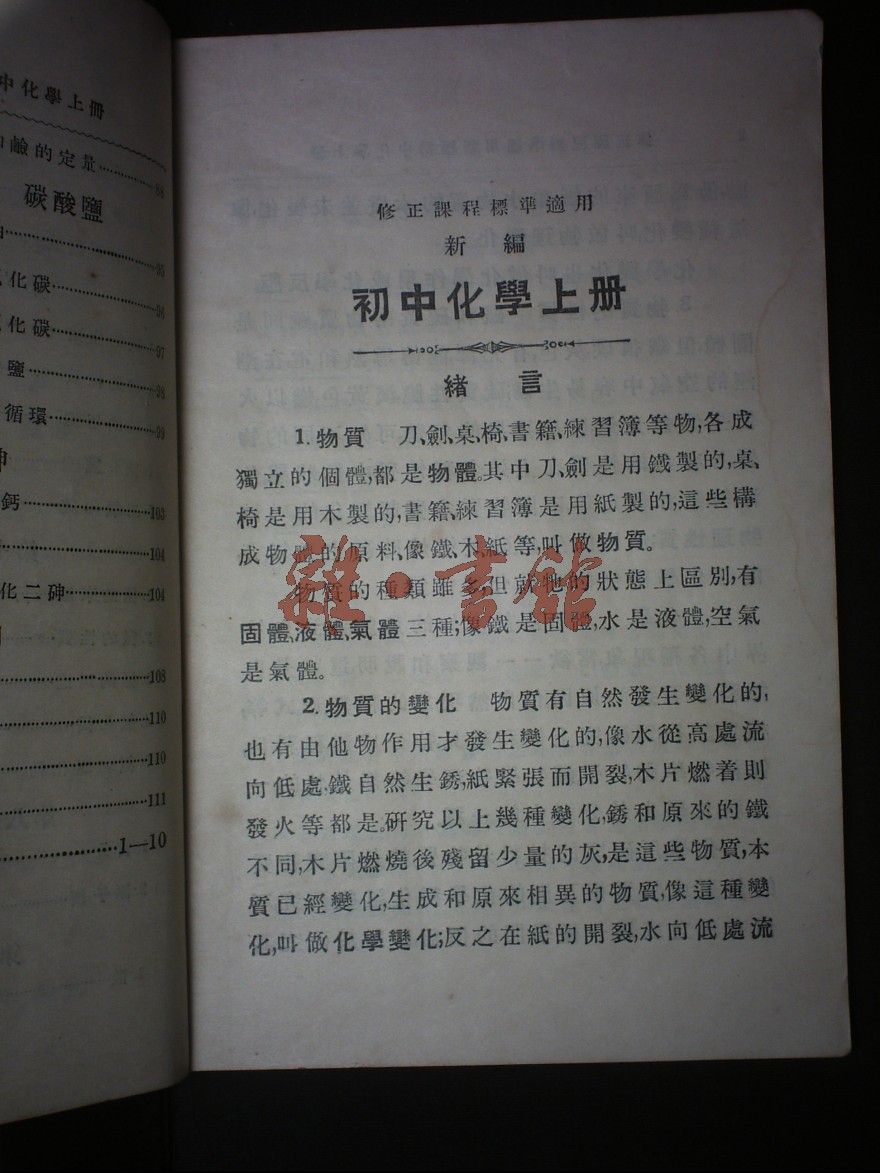 中化學上冊
鹼的定量 88
碳酸鹽
95
化碳 96
化碳 97
鹽 98
循環 99
鈣 103
104
化二砷 104
108
110
110
111
1—10
修正課程標準適用
新編
初中化學上册
緒言
1. 物質 刀、劍、桌、椅、書籍、練習簿等物,各成
獨立的個體,都是物體。其中刀、劍是用鐵製的,桌、
椅是用木製的,書籍、練習簿是用紙製的,這些構
成物體的原料、像鐵、木、紙等,叫做物質。
物質的種類雖多,但就牠的狀態上區別,有
固體、液體、氣體三種;像鐵是固體,水是液體,空氣
是氣體。
2. 物質的變化 物質有自然發生變化的,
也有由他物作用才發生變化的,像水從高處流
向低處、鐵自然生銹,紙緊張而開裂,木片燃着則
發火等都是。研究以上幾種變化,銹和原來的鐵
不同,木片燃燒後殘留少量的灰,是這些物質,本
質已經變化,生成和原來相異的物質,像這種變
化,叫做化學變化;反之在紙的開裂,水向低處流
雜·書館